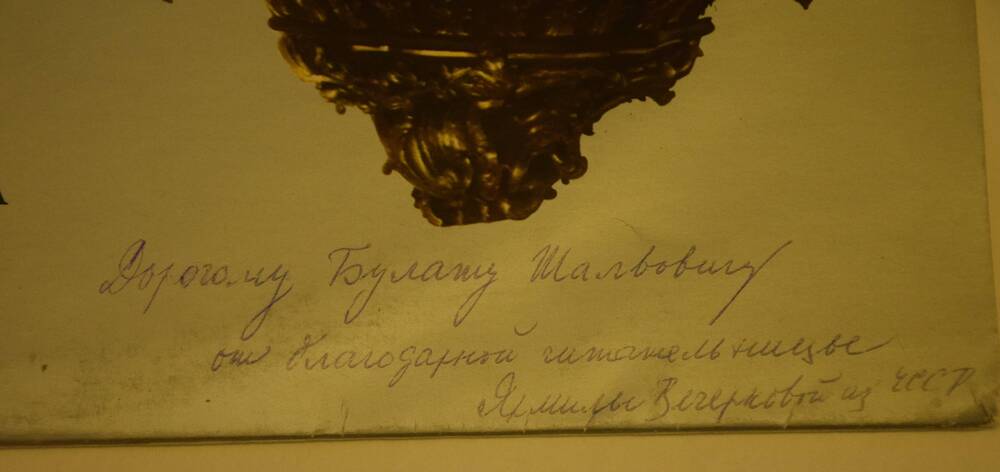 Дорогому Булату Шалвовичу
от благодарной читательницы
Ярмилы Вечерковой из ЧССР